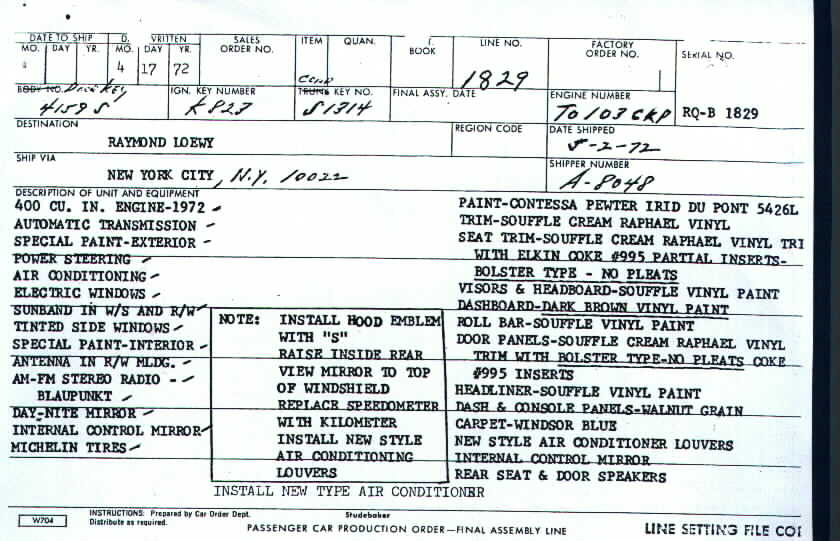 DATE TO SHIP D. WRITTEN SALES ORDER NO. ITEM QUAN. BOOK LINE NO. FACTORY ORDER NO. SERIAL NO.
MO. DAY YR. MO. DAY YR.
4 17 72 1829
BODY NO. Door Key IGN. KEY NUMBER TRUNK KEY NO. FINAL ASSY. DATE ENGINE NUMBER
4159 S K 823 S1314 TO103CKP RQ-B 1829
DESTINATION REGION CODE DATE SHIPPED
RAYMOND LOEWY 5-2-72
SHIP VIA SHIPPER NUMBER
NEW YORK CITY, N.Y. 10022 A-8048
DESCRIPTION OF UNIT AND EQUIPMENT
400 CU. IN. ENGINE-1972
AUTOMATIC TRANSMISSION
SPECIAL PAINT-EXTERIOR
POWER STEERING
AIR CONDITIONING
ELECTRIC WINDOWS
SUNBAND IN W/S AND R/W
TINTED SIDE WINDOWS
SPECIAL PAINT-INTERIOR
ANTENNA IN R/W MLDG.
AM-FM STEREO RADIO -
BLAUPUNKT
DAY-NITE MIRROR
INTERNAL CONTROL MIRROR
MICHELIN TIRES
NOTE: INSTALL HOOD EMBLEM
WITH "S"
RAISE INSIDE REAR
VIEW MIRROR TO TOP
OF WINDSHIELD
REPLACE SPEEDOMETER
WITH KILOMETER
INSTALL NEW STYLE
AIR CONDITIONING
LOUVERS
INSTALL NEW TYPE AIR CONDITIONER
PAINT-CONTESSA PEWTER IRID DU PONT 5426L
TRIM-SOUFFLE CREAM RAPHAEL VINYL
SEAT TRIM-SOUFFLE CREAM RAPHAEL VINYL TRI
WITH ELKIN COKE #995 PARTIAL INSERTS-
BOLSTER TYPE - NO PLEATS
VISORS & HEADBOARD-SOUFFLE VINYL PAINT
DASHBOARD-DARK BROWN VINYL PAINT
ROLL BAR-SOUFFLE VINYL PAINT
DOOR PANELS-SOUFFLE CREAM RAPHAEL VINYL
TRIM WITH BOLSTER TYPE-NO PLEATS COKE
#995 INSERTS
HEADLINER-SOUFFLE VINYL PAINT
DASH & CONSOLE PANELS-WALNUT GRAIN
CARPET-WINDSOR BLUE
NEW STYLE AIR CONDITIONER LOUVERS
INTERNAL CONTROL MIRROR
REAR SEAT & DOOR SPEAKERS
W704
INSTRUCTIONS: Prepared by Car Order Dept.
Distribute as required.
Studebaker
PASSENGER CAR PRODUCTION ORDER—FINAL ASSEMBLY LINE
LINE SETTING FILE COI